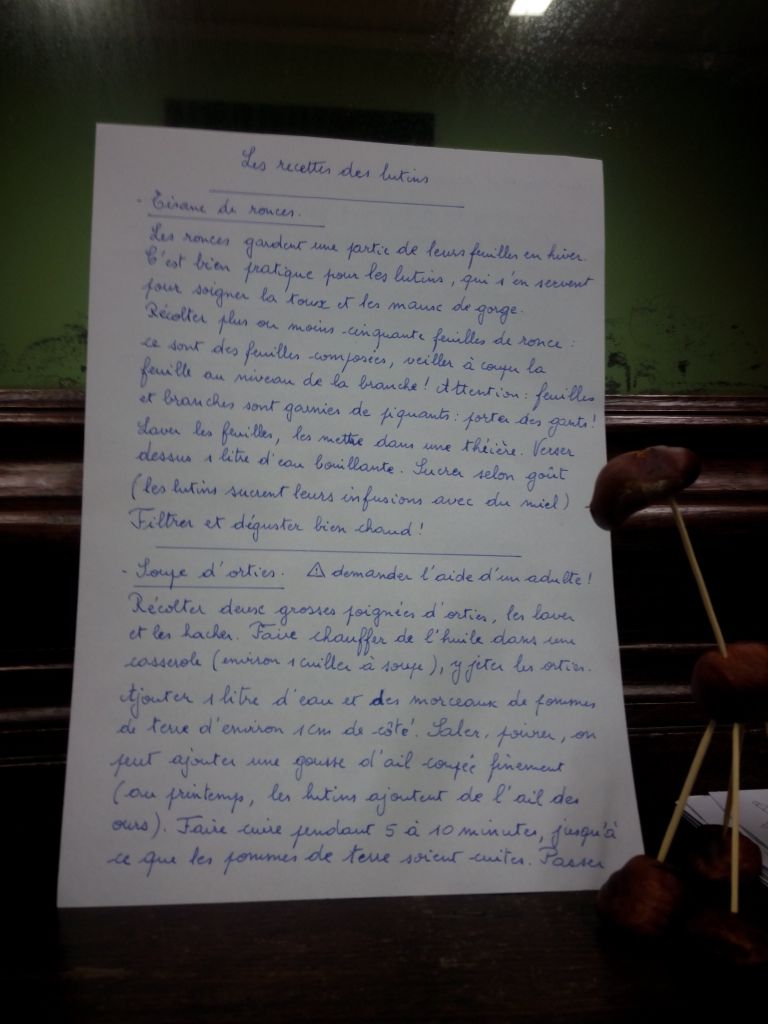 Les recettes des lutins
- Tisane de ronces.
Les ronces gardent une partie de leurs feuilles en hiver.
C'est bien pratique pour les lutins, qui s'en servent
pour soigner la toux et les maux de gorge.
Récolter plus ou moins cinquante feuilles de ronce :
ce sont des feuilles composées, veiller à couper la
feuille au niveau de la branche ! Attention : feuilles
et branches sont garnies de piquants : porter des gants !
Laver les feuilles, les mettre dans une théière. Verser
dessus 1 litre d'eau bouillante. Sucrer selon goût
(les lutins sucrent leurs infusions avec du miel)
Filtrer et déguster bien chaud !
- Soupe d'orties. ⚠ demander l'aide d'un adulte !
Récolter deux grosses poignées d'orties, les laver
et les hacher. Faire chauffer de l'huile dans une
casserole (environ 1 cuiller à soupe), y jeter les orties.
Ajouter 1 litre d'eau et des morceaux de pommes
de terre d'environ 1cm de côté. Saler, poivrer, on
peut ajouter une gousse d'ail coupée finement
(au printemps, les lutins ajoutent de l'ail des
ours). Faire cuire pendant 5 à 10 minutes, jusqu'à
ce que les pommes de terre soient cuites. Passer